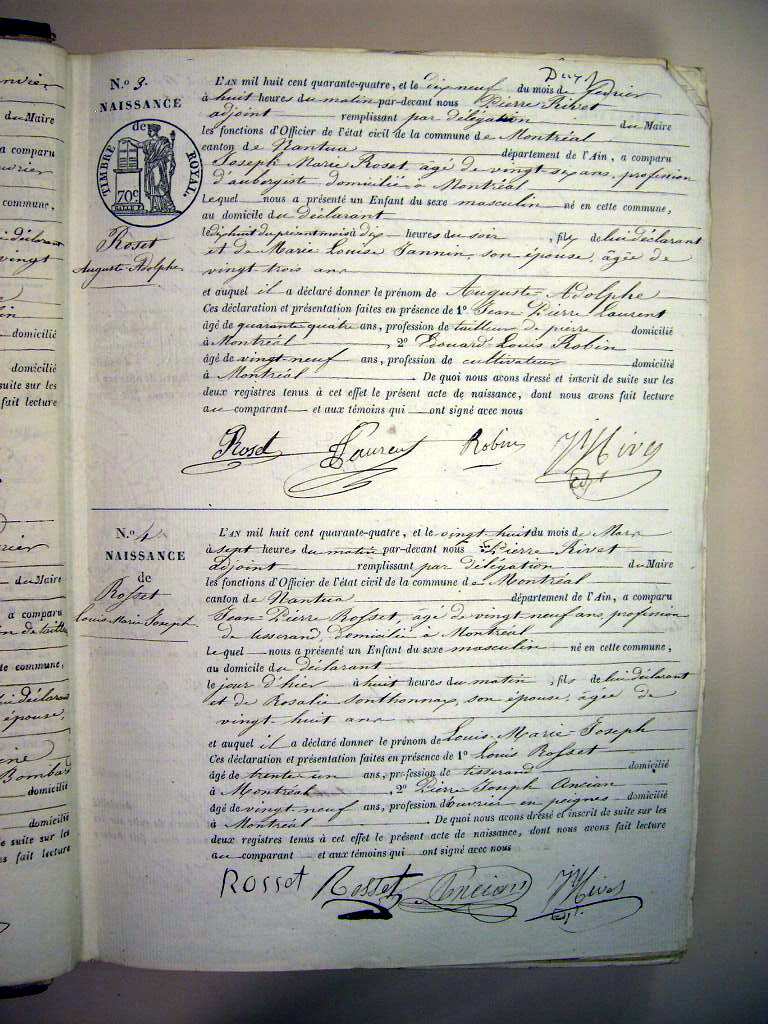 Duz
N.o 3.
NAISSANCE
de
TIMBRE ROYAL.
70c
Roset
Auguste Adolphe
L'AN mil huit cent quarante-quatre, et le dix neuf du mois de février
à huit heures du matin par-devant nous Pierre Rivet
adjoint remplissant par délégation du Maire
les fonctions d'Officier de l'état civil de la commune de Montréal
canton de Nantua département de l'Ain, a comparu
Joseph Marie Roset âgé de vingt six ans, profession
d'aubergiste domicilié à Montréal
Lequel nous a présenté un Enfant du sexe masculin né en cette commune,
au domicile du déclarant
le dix huit du présent mois à dix heures du soir, fils de lui déclarant
et de Marie Louise Jannin, son épouse, âgée de
vingt trois ans
et auquel il a déclaré donner le prénom de Auguste Adolphe
Ces déclaration et présentation faites en présence de 1o Jean Pierre Laurent
âgé de quarante quatre ans, profession de tailleur de pierre domicilié
à Montréal, 2o Edouard Louis Robin
âgé de vingt-neuf ans, profession de cultivateur domicilié
à Montréal. De quoi nous avons dressé et inscrit de suite sur les
deux registres tenus à cet effet le présent acte de naissance, dont nous avons fait lecture
au comparant et aux témoins qui ont signé avec nous
Roset Laurent Robin Rivet
adjt
N.o 4
NAISSANCE
de
Rosset
Louis Marie Joseph
L'AN mil huit cent quarante-quatre, et le vingt huit du mois de Mars
à sept heures du matin par-devant nous Pierre Rivet
adjoint remplissant par délégation du Maire
les fonctions d'Officier de l'état civil de la commune de Montréal
canton de Nantua département de l'Ain, a comparu
Jean Pierre Rosset, âgé de vingt neuf ans, profession
de tisserand, domicilié à Montréal
Le quel nous a présenté un Enfant du sexe masculin né en cette commune,
au domicile du déclarant
le jour d'hier à huit heures du matin, fils de lui déclarant
et de Rosalie Sonthonnax, son épouse, âgée de
vingt huit ans
et auquel il a déclaré donner le prénom de Louis Marie Joseph
Ces déclaration et présentation faites en présence de 1o Louis Rosset
âgé de trente un ans, profession de tisserand domicilié
à Montréal, 2o Pierre Joseph Ancian
âgé de vingt neuf ans, profession d'ouvrier en peignes domicilié
à Montréal. De quoi nous avons dressé et inscrit de suite sur les
deux registres tenus à cet effet le présent acte de naissance, dont nous avons fait lecture
au comparant et aux témoins qui ont signé avec nous
Rosset Rosset Ancian Rivet
adjt